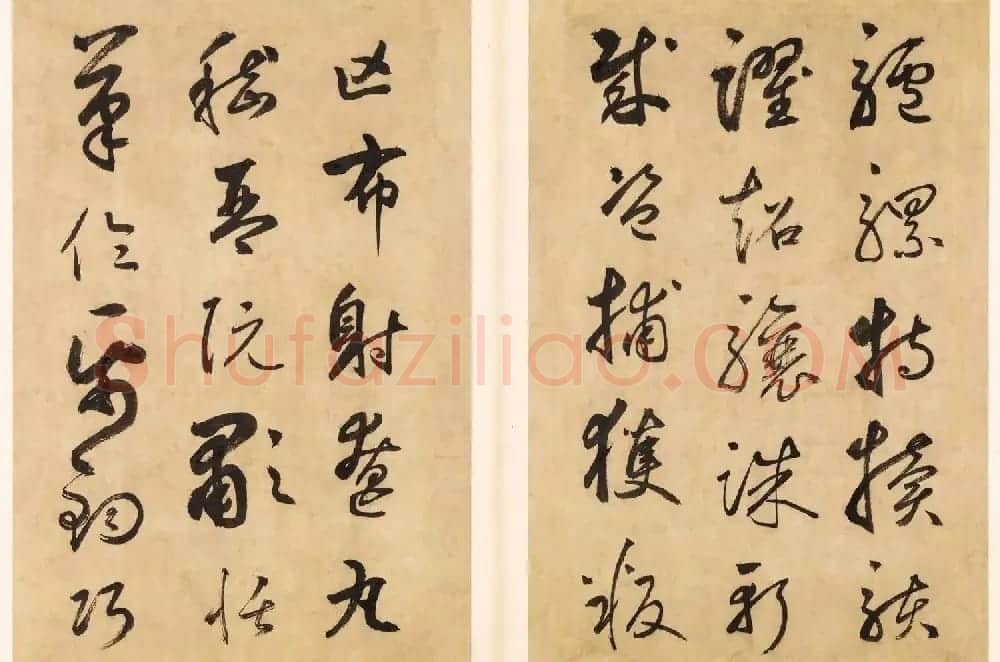 驢騾特犢駭
躍超驤誅斬
賊盜捕獲叛
亡布射遼丸
嵇琴阮歗恬
筆倫帋鈞巧
shufaziliao.COM